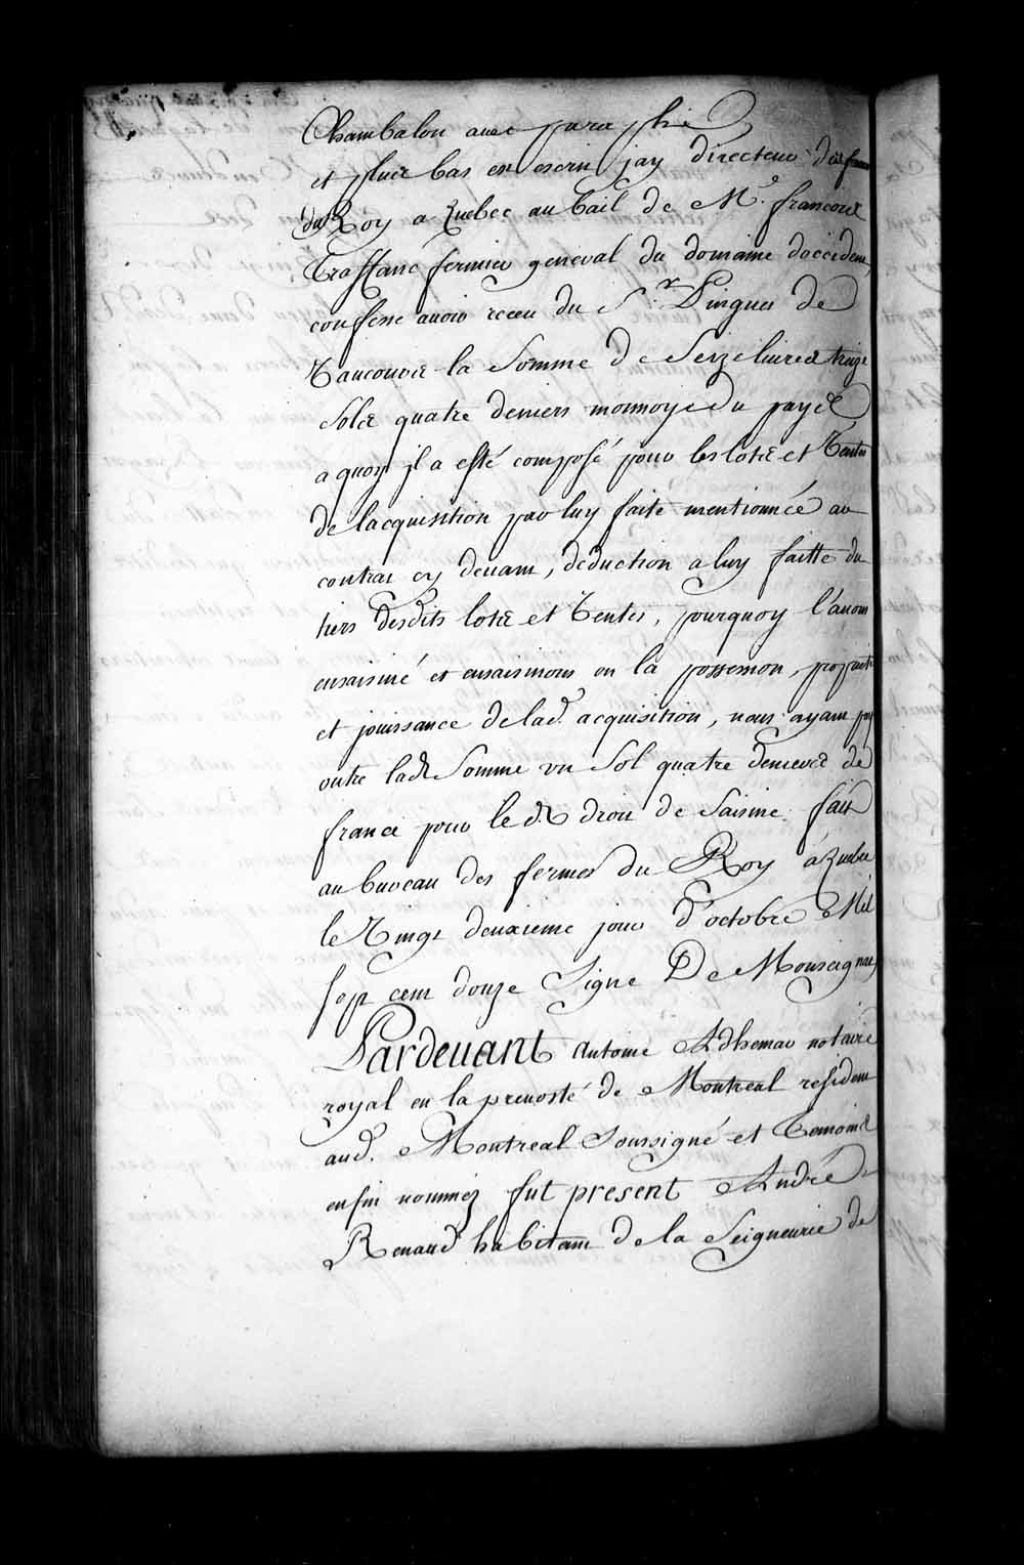 Chambalon avec paraphe
et plus bas est escrit, jay directeur des fermes
du Roy a Quebec au bail de Mr. francois
Traffane fermier general du domaine doccident,
confesse avoir receu du Sr. Pinguet de
Vaucour la Somme de Seize livres treize
Sols quatre deniers monnoye du payis
a quoy jl a esté composé pour les lots et Ventes
de lacquisition par luy faite mentionnée au
contrat cy devant, deduction a luy faitte du
tiers desdits lots et Ventes, pourquoy l'avons
ensaisiné et ensaisinons en la possession, proprieté
et jouissance de lad. acquisition, nous ayant payé
outre lad. Somme un Sol quatre deniers de
france pour led. droit de Saisine. fait
au bureau des fermes du Roy à Quebec
le Vingt deuxieme jour d'octobre Mil
Sept cent douze Signé De Monseignat
Pardevant Antoine Adhemar notaire
royal en la prevosté de Montreal resident
aud. Montreal Soussigné et Temoins
en fin nommez fut present André
Renaud habitant de la Seigneurie de